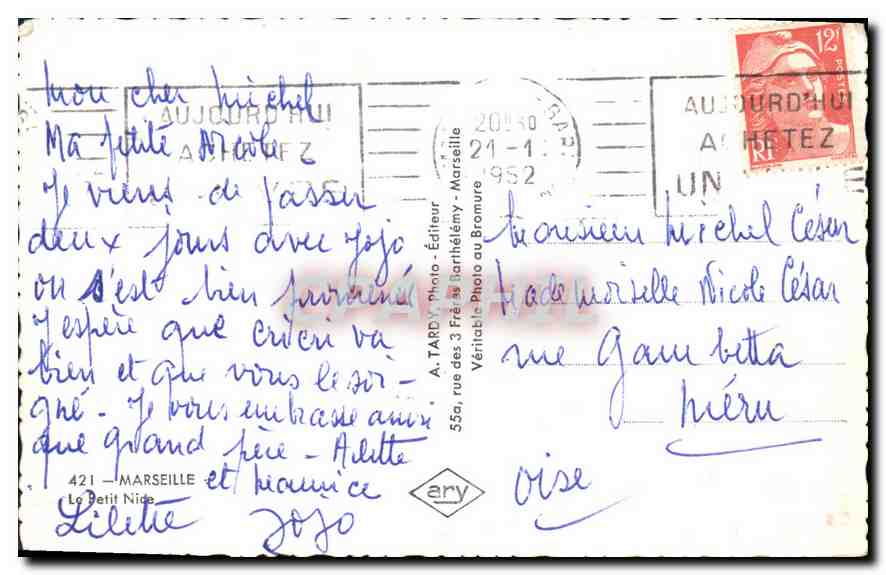 Mon cher Michel
Ma petite Nicole
Je viens de passer
deux jours avec Jojo
on s'est bien promené
J'espère que cricri va
bien et que vous le soi-
gné - Je vous embrasse ainsi
que grand père - Arlette
et Maurice
Lilette Jojo
421 - MARSEILLE
Le Petit Nice
A. TARDY, Photo - Éditeur
55a, rue des 3 Frères Barthélémy - Marseille
Véritable Photo au Bromure
ary
AUJOURD'HUI
ACHETEZ
20H30
21-1
1952
GARE
12F
POSTES
RF
AUJOURD'HUI
ACHETEZ
UN
Monsieur Michel César
Mademoiselle Nicole César
rue Gambetta
Méru
Oise
CPAPHIL